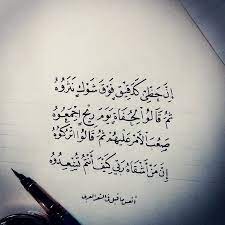 إِنَّ حَظِّي كَدَقِيقٍ فَوْقَ شَوْكٍ نَثَرُوهُ
ثُمَّ قَالُوا لِحُفَاةٍ يَوْمَ رِيحٍ اجْمَعُوهُ
صَعُبَ الْأَمْرُ عَلَيْهِمْ ثُمَّ قَالُوا اتْرُكُوهُ
إِنَّ مَنْ أَشْقَاهُ رَبِّي كَيْفَ أَنْتُمْ تُسْعِدُوهُ
العربي